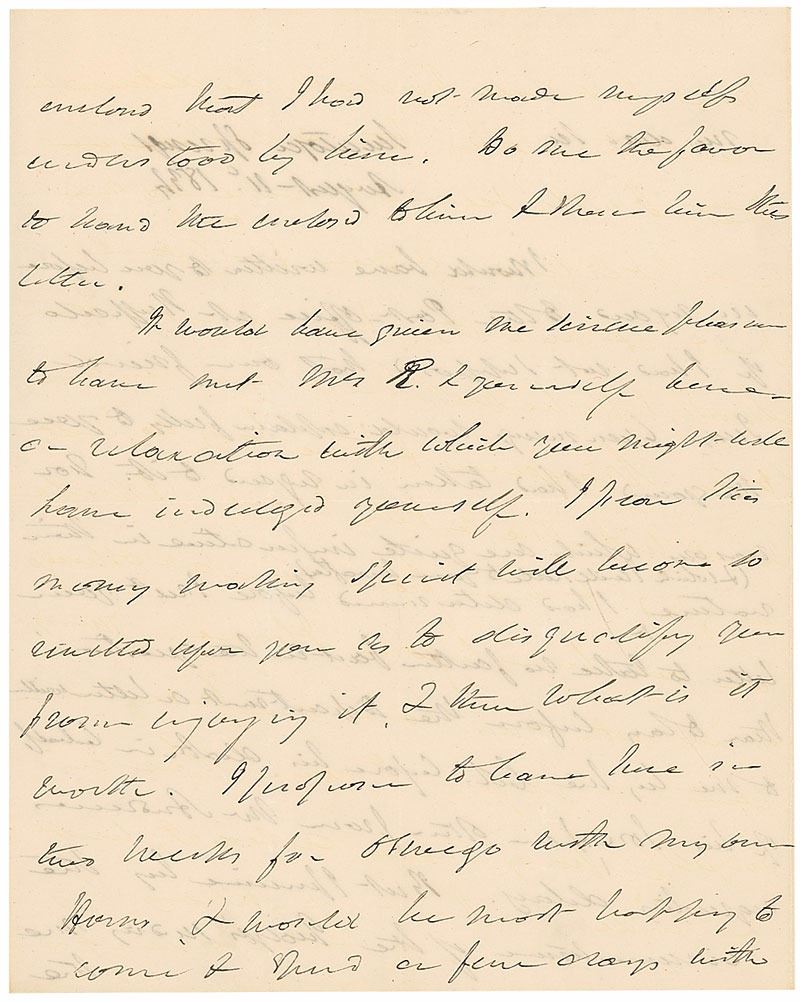 enclosed that I had not made myself
understood by him. Do me the favor
to hand the enclosed to him & show him this
letter.
It would have given me sincere pleasure
to have met Mrs R. & yourself here
a relaxation with which you might well
have indulged yourself. I fear this
money making spirit will become so
riveted upon you as to disqualify you
from enjoying it. & then what is it
worth. I propose to leave here in
two weeks for Oswego with my own
Horses, & would be most happy to
come & spend a few days with